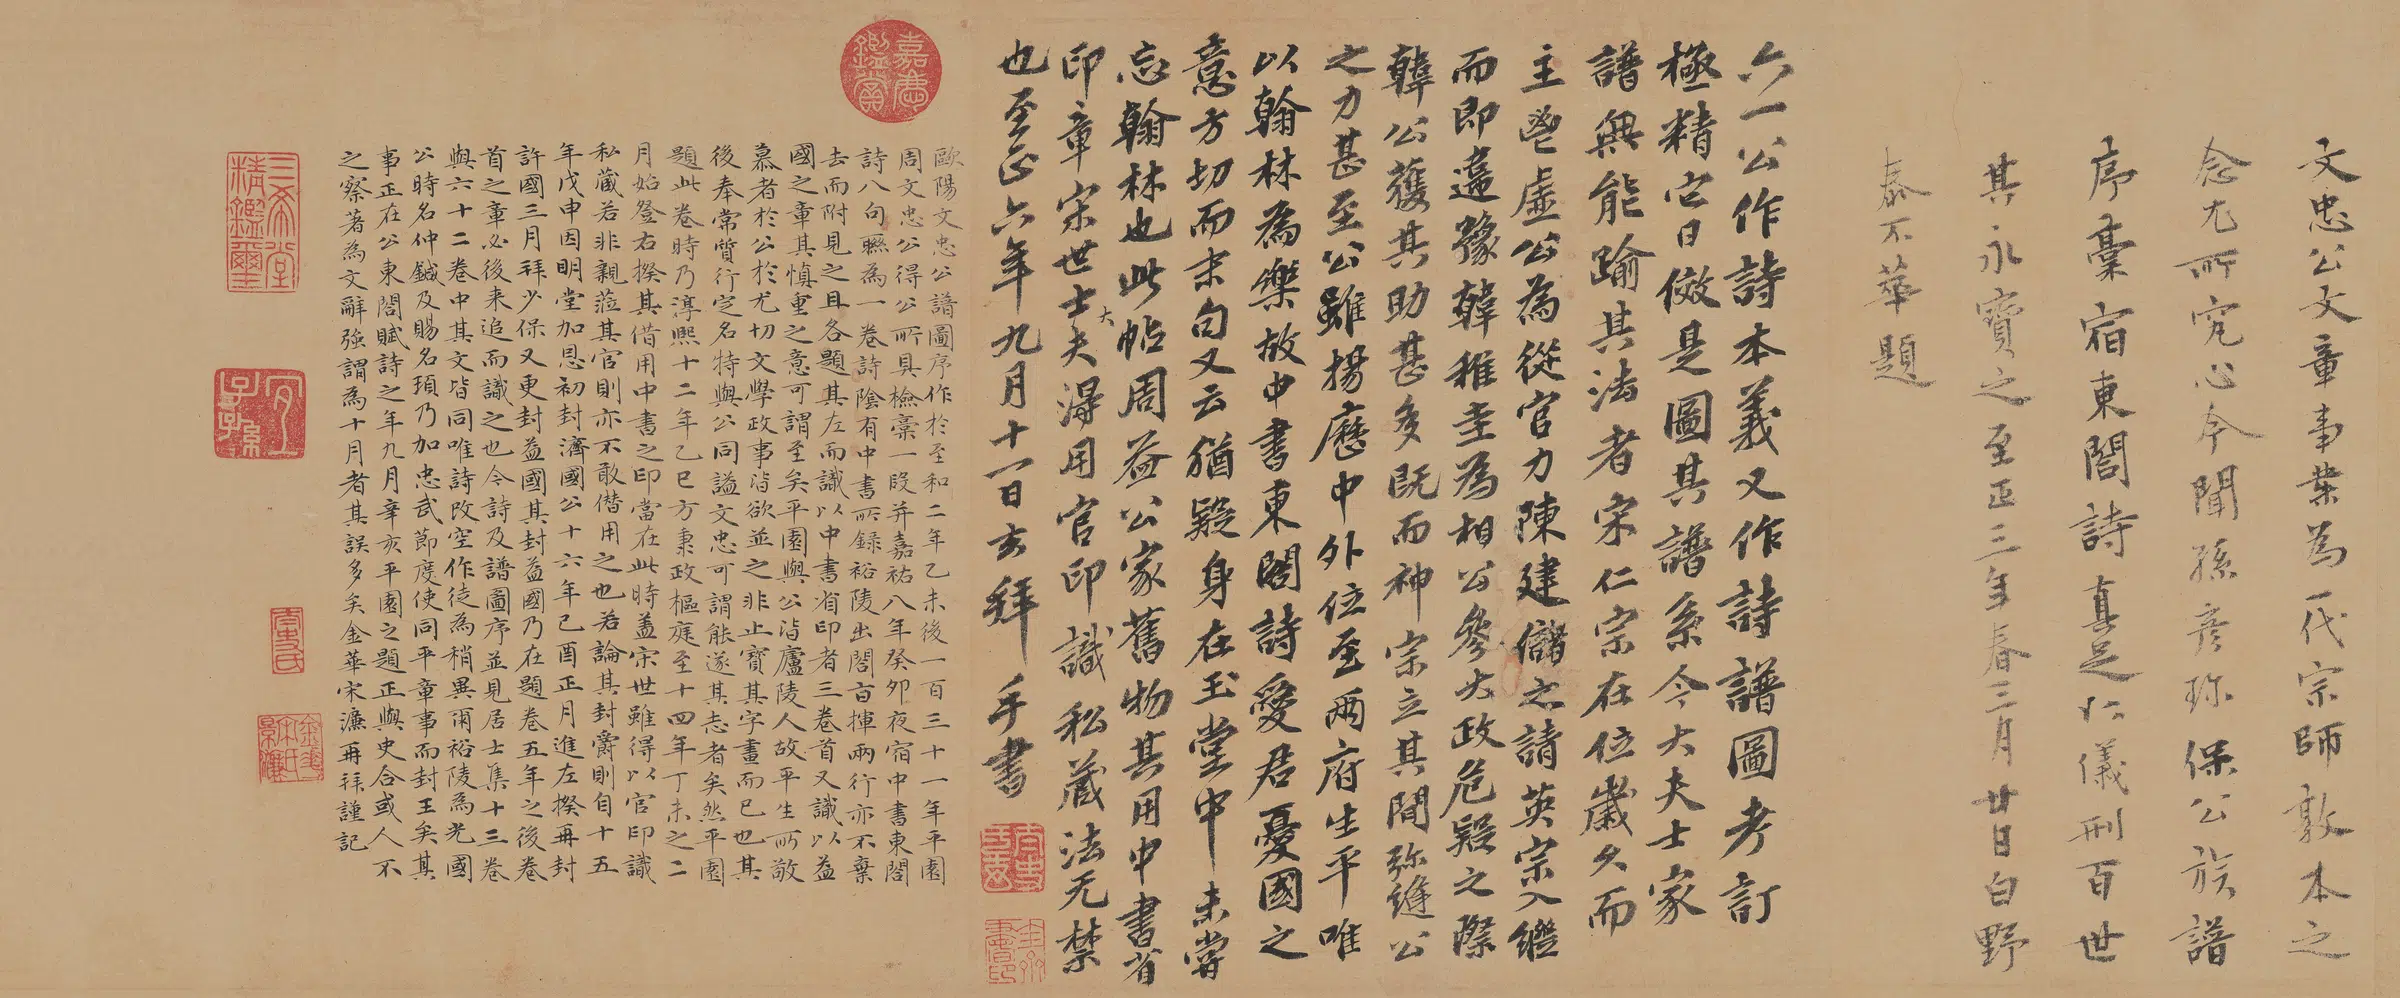 文忠公文章事業為一代宗師敦本之
念尤所究心今聞孫彥珍保公族譜
序稾宿東閤詩真足以儀刑百世
其永寶之至正三年春三月廿日白野
泰不華題
六一公作詩本義又作詩譜圖考訂
極精它日倣是圖其譜系今大夫士家
譜無能踰其法者宋仁宗在位歲久而
主鬯虛公為從官力陳建儲之請英宗入繼
而即違豫韓稚圭為相公參大政危疑之際
韓公獲其助甚多既而神宗立其間弥縫公
之力甚至公雖揚歷中外位至兩府生平唯
以翰林為樂故中書東閤詩愛君憂國之
意方切而末句又云猶疑身在玉堂中未嘗
忘翰林也此帖周益公家舊物其用中書省
印章宋世士大夫得用官印識私蔵法无禁
也至正六年九月十一日玄拜手書
歐陽文忠公譜圖序作於至和二年乙未後一百三十一年平園
周文忠公得公所具檢稾一段并嘉祐八年癸卯夜宿中書東閤
詩八句聮為一卷詩陰有中書所録裕陵出閤旨揮兩行亦不棄
去而附見之且各題其左而識以中書省印者三卷首又識以益
國之章其慎重之意可謂至矣平園與公皆廬陵人故平生所敬
慕者於公於尤切文學政事皆欲並之非止寶其字畫而已也其
後奉常質行定名特與公同謚文忠可謂能遂其志者矣然平園
題此卷時乃淳熙十二年乙巳方秉政樞庭至十四年丁未之二
月始登右揆其借用中書之印當在此時盖宋世雖得以官印識
私蔵若非親蒞其官則亦不敢僭用之也若論其封爵則自十五
年戊申因明堂加恩初封濟國公十六年己酉正月進左揆再封
許國三月拜少保又更封益國其封益國乃在題卷五年之後卷
首之章必後来追而識之也今詩及譜圖序並見居士集十三卷
與六十二卷中其文皆同唯詩改空作徒為稍異爾裕陵為光國
公時名仲鍼及賜名頊乃加忠武節度使同平章事而封王矣其
事正在公東閤賦詩之年九月辛亥平園之題正與史合或人不
之察著為文辭強謂為十月者其誤多矣金華宋濂再拜謹記
嘉慶鑑賞
三希堂精鑑璽
宜子孫
太史氏
金華宋氏景濂